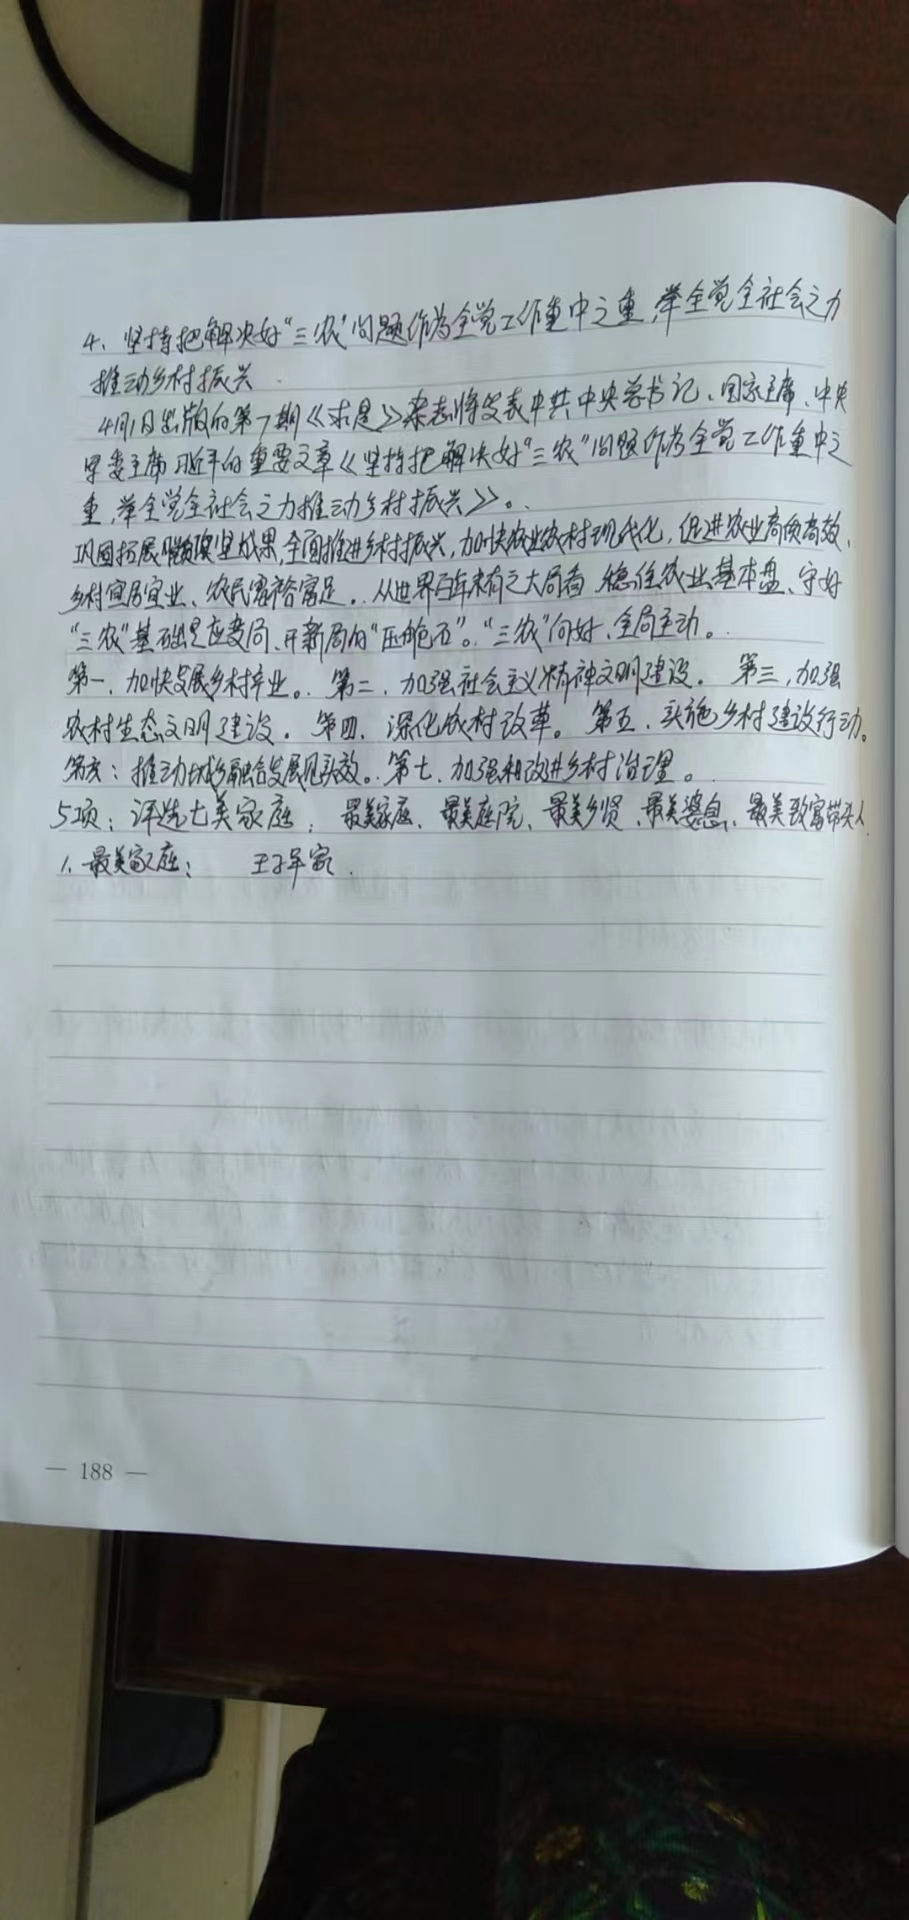 4、坚持把解决好“三农”问题作为全党工作重中之重,举全党全社会之力
推动乡村振兴.
4月1日出版的第7期《求是》杂志将发表中共中央总书记、国家主席、中央
军委主席习近平的重要文章《坚持把解决好“三农”问题作为全党工作重中之
重,举全党全社会之力推动乡村振兴》。
巩固拓展脱贫攻坚成果,全面推进乡村振兴,加快农业农村现代化,促进农业高质高效、
乡村宜居宜业、农民富裕富足。从世界百年未有之大局看,稳住农业基本盘、守好
“三农”基础是应变局、开新局的“压舱石”。“三农”向好,全局主动。
第一、加快发展乡村产业。第二、加强社会主义精神文明建设。第三,加强
农村生态文明建设。第四、深化农村改革。第五、实施乡村建设行动。
第六:推动城乡融合发展见实效。第七、加强和改进乡村治理。
5项:评选七美家庭:最美家庭、最美庭院、最美乡贤、最美婆息、最美致富带头人
1、最美家庭: 家.
— 188 —